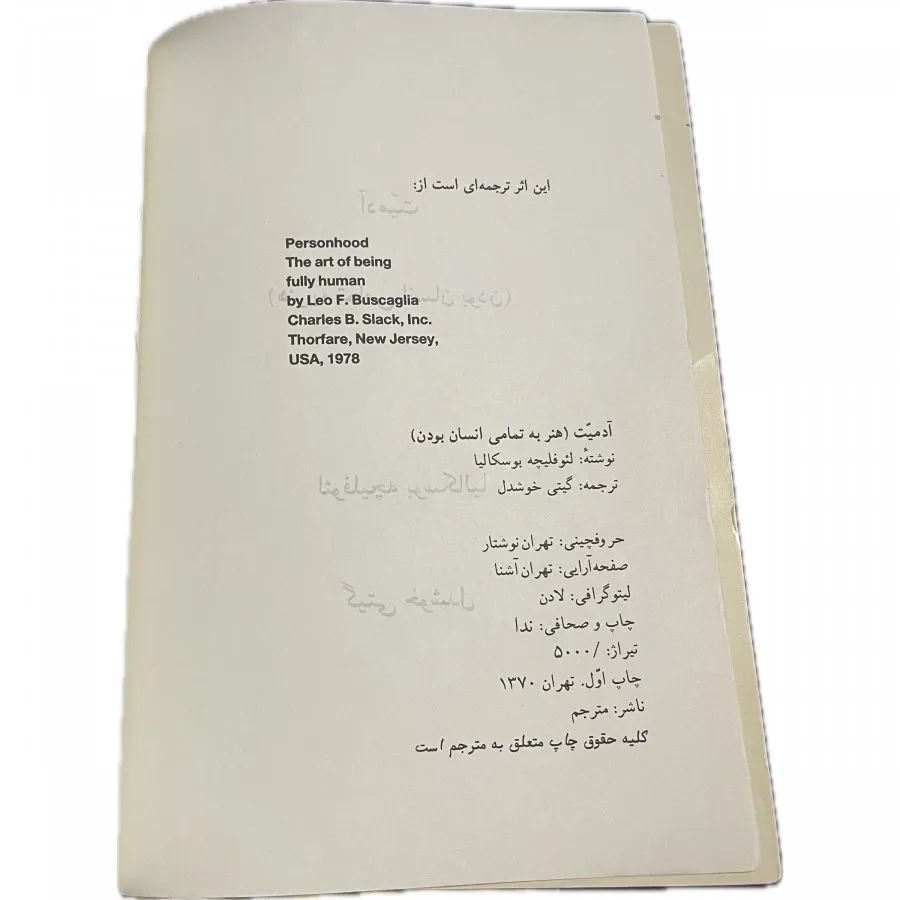 این اثر ترجمه‌ای است از:
Personhood
The art of being
fully human
by Leo F. Buscaglia
Charles B. Slack, Inc.
Thorfare, New Jersey,
USA, 1978
آدمیّت (هنر به تمامی انسان بودن)
نوشتهٔ: لئوفلیچه بوسکالیا
ترجمه: گیتی خوشدل
حروفچینی: تهران‌نوشتار
صفحه‌آرایی: تهران‌آشنا
لیتوگرافی: لادن
چاپ و صحافی: ندا
تیراژ: /۵۰۰۰
چاپ اوّل. تهران ۱۳۷۰
ناشر: مترجم
کلیه حقوق چاپ متعلق به مترجم است